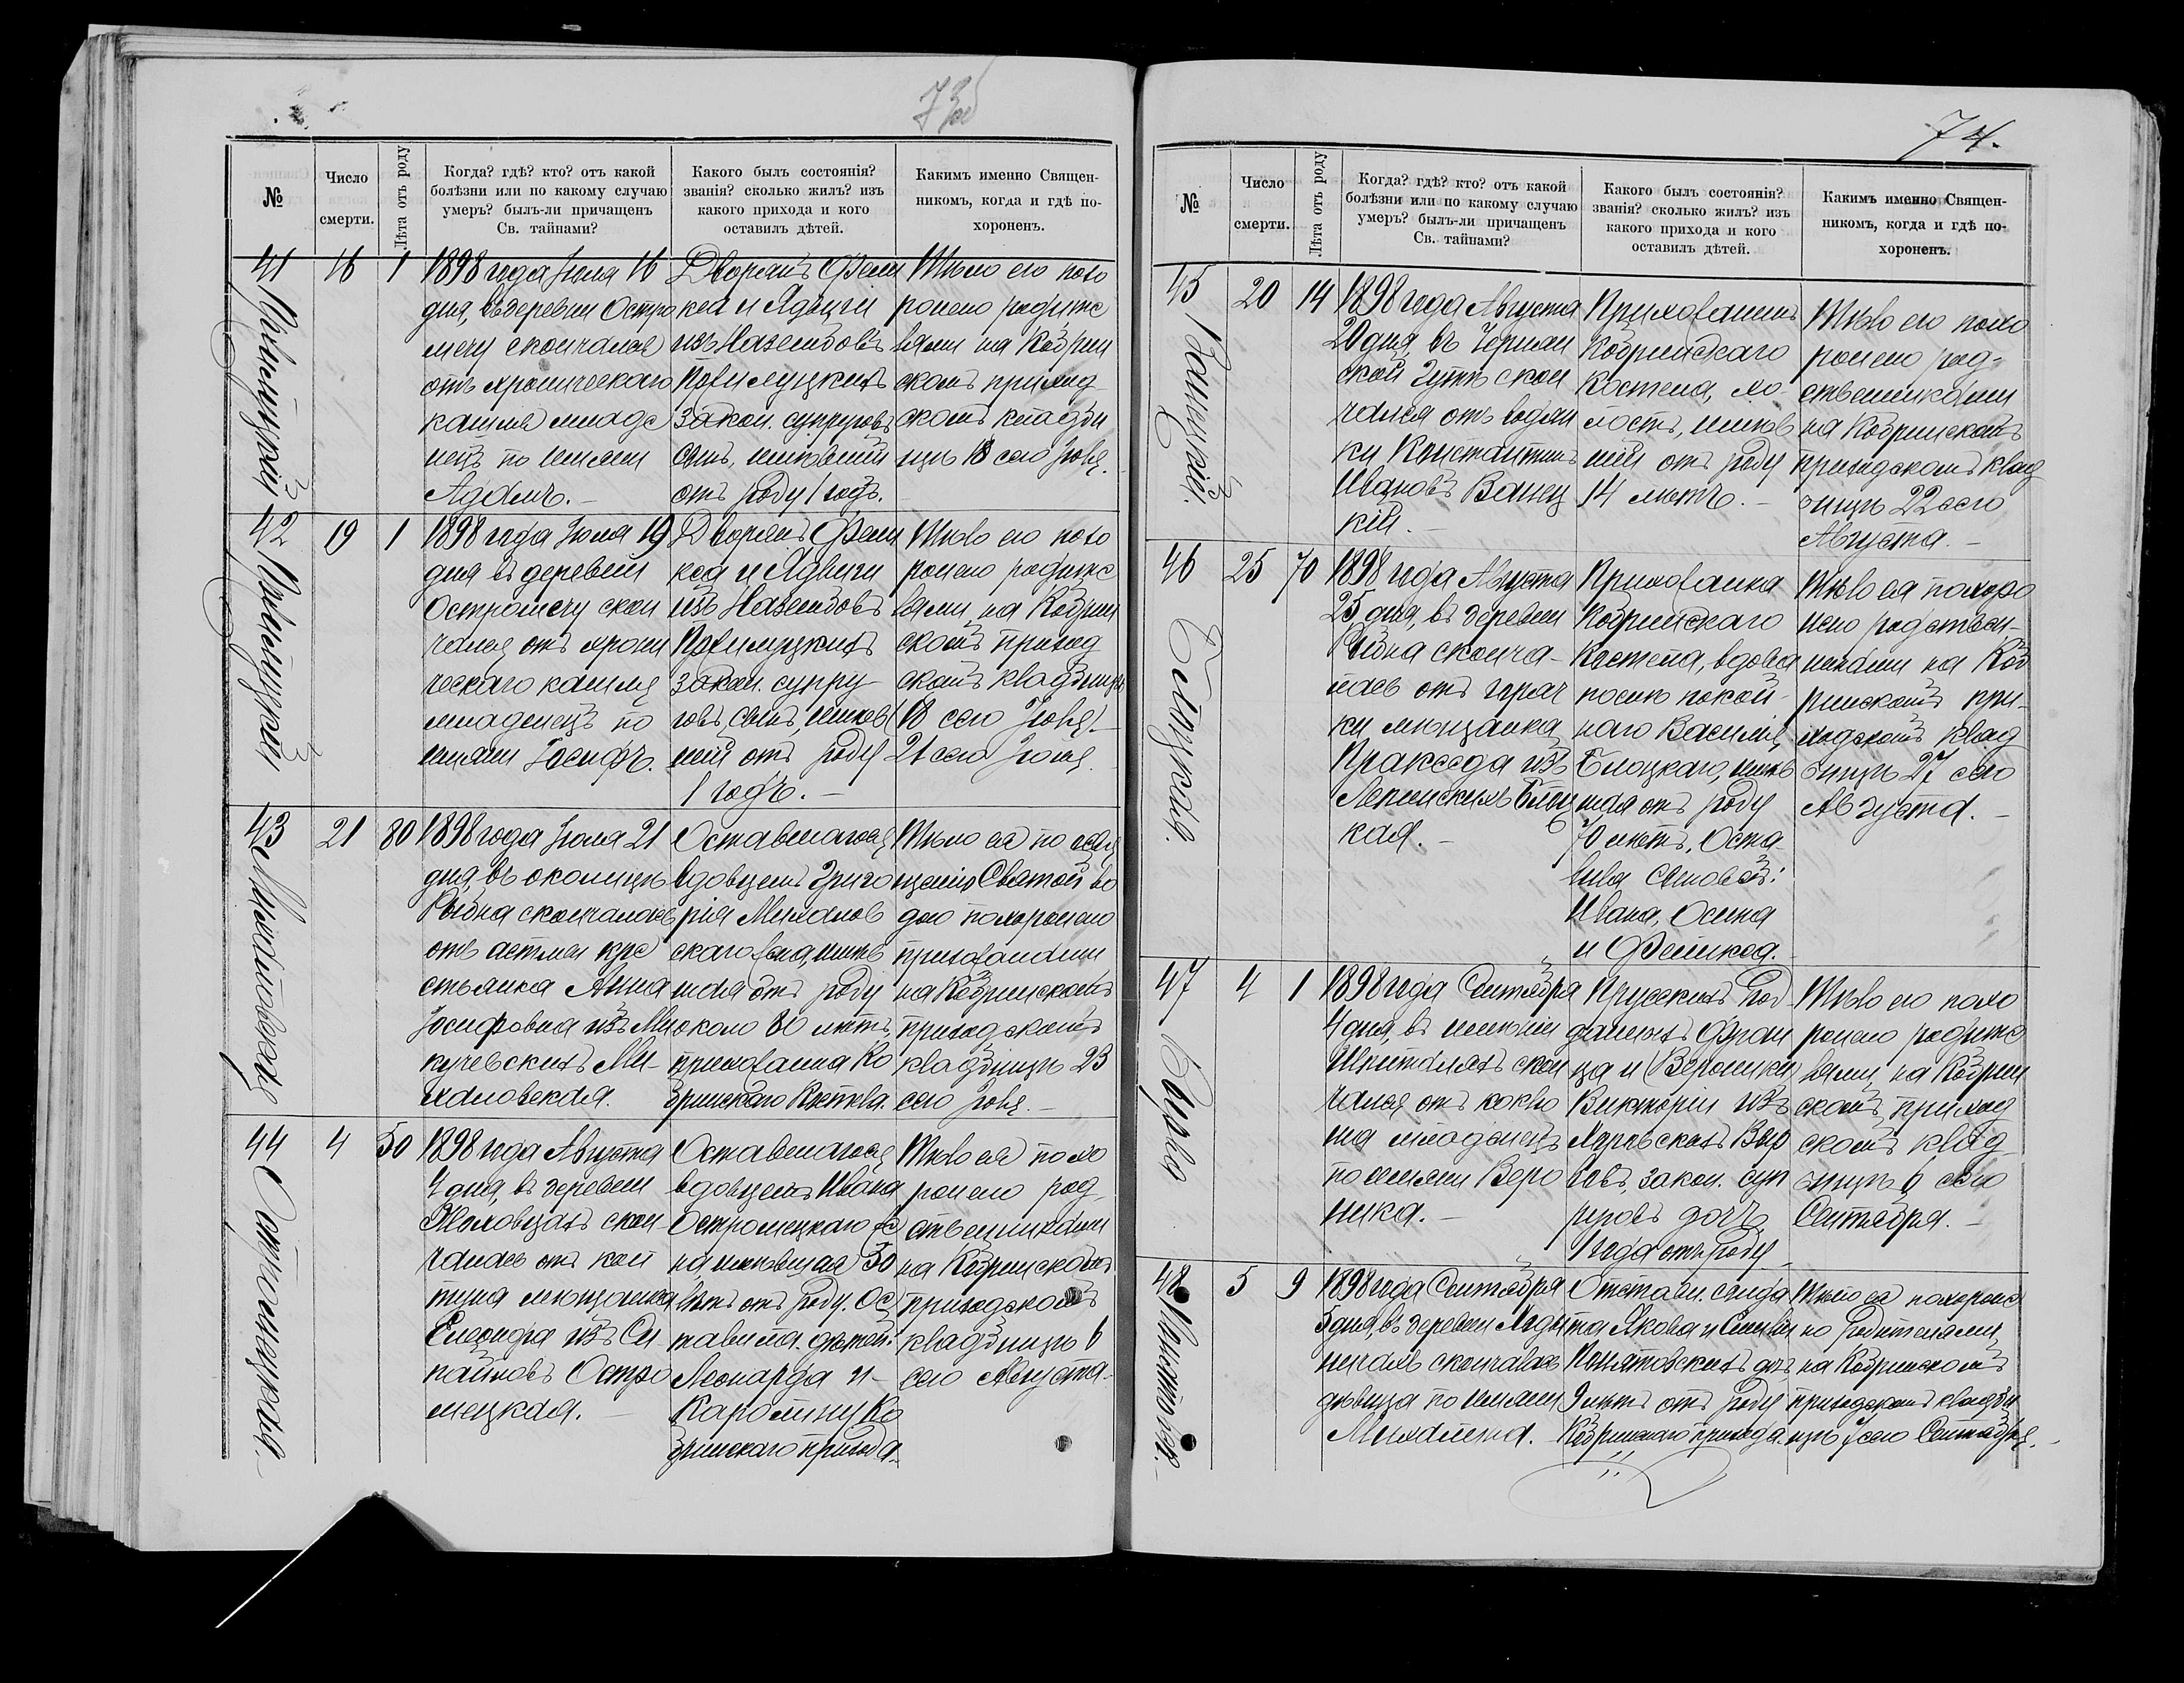 73об
№
Число
смерти.
Лѣта отъ роду
Когда? гдѣ? кто? отъ какой
болѣзни или по какому случаю
умеръ? былъ-ли причащенъ
Св. тайнами?
Какого былъ состоянія?
званія? сколько жилъ? изъ
какого прихода и кого
оставилъ дѣтей.
Какимъ именно Священ-
никомъ, когда и гдѣ по-
хороненъ.
41
16
1
1898 года Іюля 16
дня, въ деревни Остро
мечу скончался
отъ хроническаго
кашля младе
нецъ по имени
Адамъ.
Дворянъ Фели
кса и Ядвиги
изъ
закон. супруговъ
сынъ, имѣвшій
отъ роду 1 годъ.
Тѣло его похо
ронено родите
лями на Кобрин
скомъ приход
скомъ кладби
щѣ 18 сего Іюля.
42
19
1
1898 года Іюля 19
дня въ деревни
Остромечу скон
чался отъ хрони
ческаго кашля
младенецъ по
имени Іосифъ.
Дворянъ Фели
кса и Ядвиги
изъ
закон. супру-
говъ, сынъ, имѣв
шій отъ роду
1 годъ.
Тѣло его похо
ронено родите
лями, на Кобрин
скомъ приход
скомъ кладбищѣ
(18 сего Іюля)
21 сего Іюля
43
Михаловская
21
80
1898 года Іюля 21
дня, въ околицѣ
Рыбна скончалась
отъ астмы кре
стьянка Анна
Іосифовна изъ Ми
кучевскихъ Ми-
халовская.
Оставшагося
вдовцемъ Григо
рія Михалов
скаго жена, имѣв
шая отъ роду
около 80 лѣтъ,
прихожанка Ко
бринскаго Костела.
Тѣло ея по освя
щеніи Святой во
дою похоронено
прихожанами
на Кобринскомъ
приходскомъ
кладбищѣ 23
сего Іюля.
44
Остромецкая.
4
50
1898 года Августа
4 дня, въ деревни
скон-
чалась отъ кол
туна мѣщанка
Елеонора изъ
Остро
мецкая.
Оставшагося
вдовцемъ Ивана
Остромецкаго же
на, имѣвшая 50
лѣтъ отъ роду. Ос
тавила дѣтей:
Леонарда и
Каролину Ко
бринскаго прихода.
Тѣло ея похо
ронено род
ственниками
на Кобринскомъ
приходскомъ
кладбищѣ 6
сего Августа.
74.
№
Число
смерти.
Лѣта отъ роду
Когда? гдѣ? кто? отъ какой
болѣзни или по какому случаю
умеръ? былъ-ли причащенъ
Св. тайнами?
Какого былъ состоянія?
званія? сколько жилъ? изъ
какого прихода и кого
оставилъ дѣтей.
Какимъ именно Священ-
никомъ, когда и гдѣ по-
хороненъ.
45
Ванецкій.
20
14
1898 года Августа
20 дня, въ
скон
чался отъ водян
ки Константинъ
Ивановъ Ванец
кій.
Прихожанинъ
Кобринскаго
Костела, хо
лостъ, имѣв
шій отъ роду
14 лѣтъ.
Тѣло его похо
ронено род-
ственниками
на Кобринскомъ
приходскомъ клад
бищѣ 22 сего
Августа.
46
25
70
1898 года Августа
25 дня, въ деревни
Рыбна сконча-
лась отъ горяч
ки мѣщанка
Пракседа изъ
кая.
Прихожанка
Кобринскаго
Костела, вдова
послѣ покой-
наго Василія
имѣв
шая отъ роду
70 лѣтъ. Оста
вила сыновей:
Ивана, Осипа
и Феликса.
Тѣло ея похоро
нено родствен-
никами на Коб
ринскомъ при-
ходскомъ клад
бищѣ 27 сего
Августа.
47
4
1
1898 года Сентября
4 дня, въ имѣніи
скон
чался отъ коклю
ша младенецъ
по имени Веро
ника.
Прусскихъ под-
данныхъ Фран
ца и (Вероники)
Викторіи изъ
закон. суп
руговъ дочь,
1 года отъ роду
Тѣло его похо
ронено родите
лями, на Кобрин
скомъ приход
скомъ клад
бищѣ 6 сего
Сентября.
48
5
9
1898 года Сентября
5 дня, въ деревни
скончалась
дѣвица по имени
Михалина.
Отставн. солда
та Якова и
дочь
9 лѣтъ отъ роду
Кобринскаго прихода.
Тѣло ея похороне
но родителями,
на Кобринскомъ
приходскомъ кладби
щѣ 7 сего Сентября.